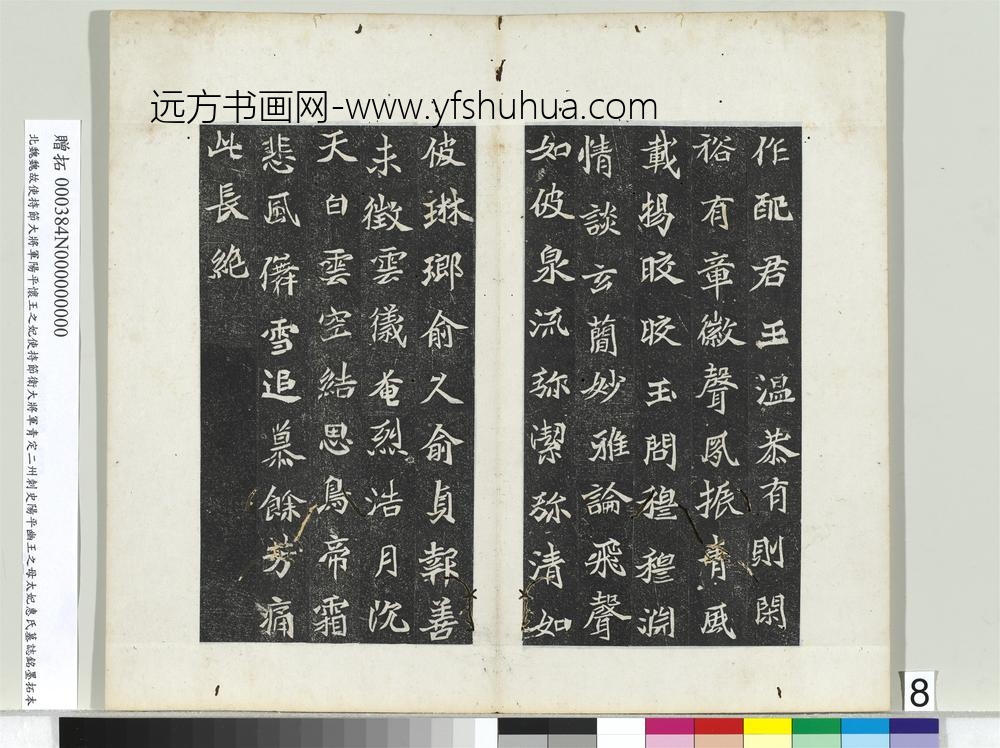 远方书画网-www.yfshuhua.com
作配君王温恭有則閑
裕有章徽聲夙振清風
載揚晈晈玉問穆穆淵
情談玄蕳妙雅論飛聲
如彼泉流弥潔弥清如
彼琳瑯俞久俞貞報善
未徵雲儀奄烈浩月沉
天白雲空結思鳥啼霜
悲風儛雪追慕餘芳痛
此長絶
贈拓 000384N000000000
北魏魏故使持節大將軍陽平懷王之妃使持節衛大將軍青定二州刺史陽平幽王之母太妃惠氏墓誌銘墨拓本
8